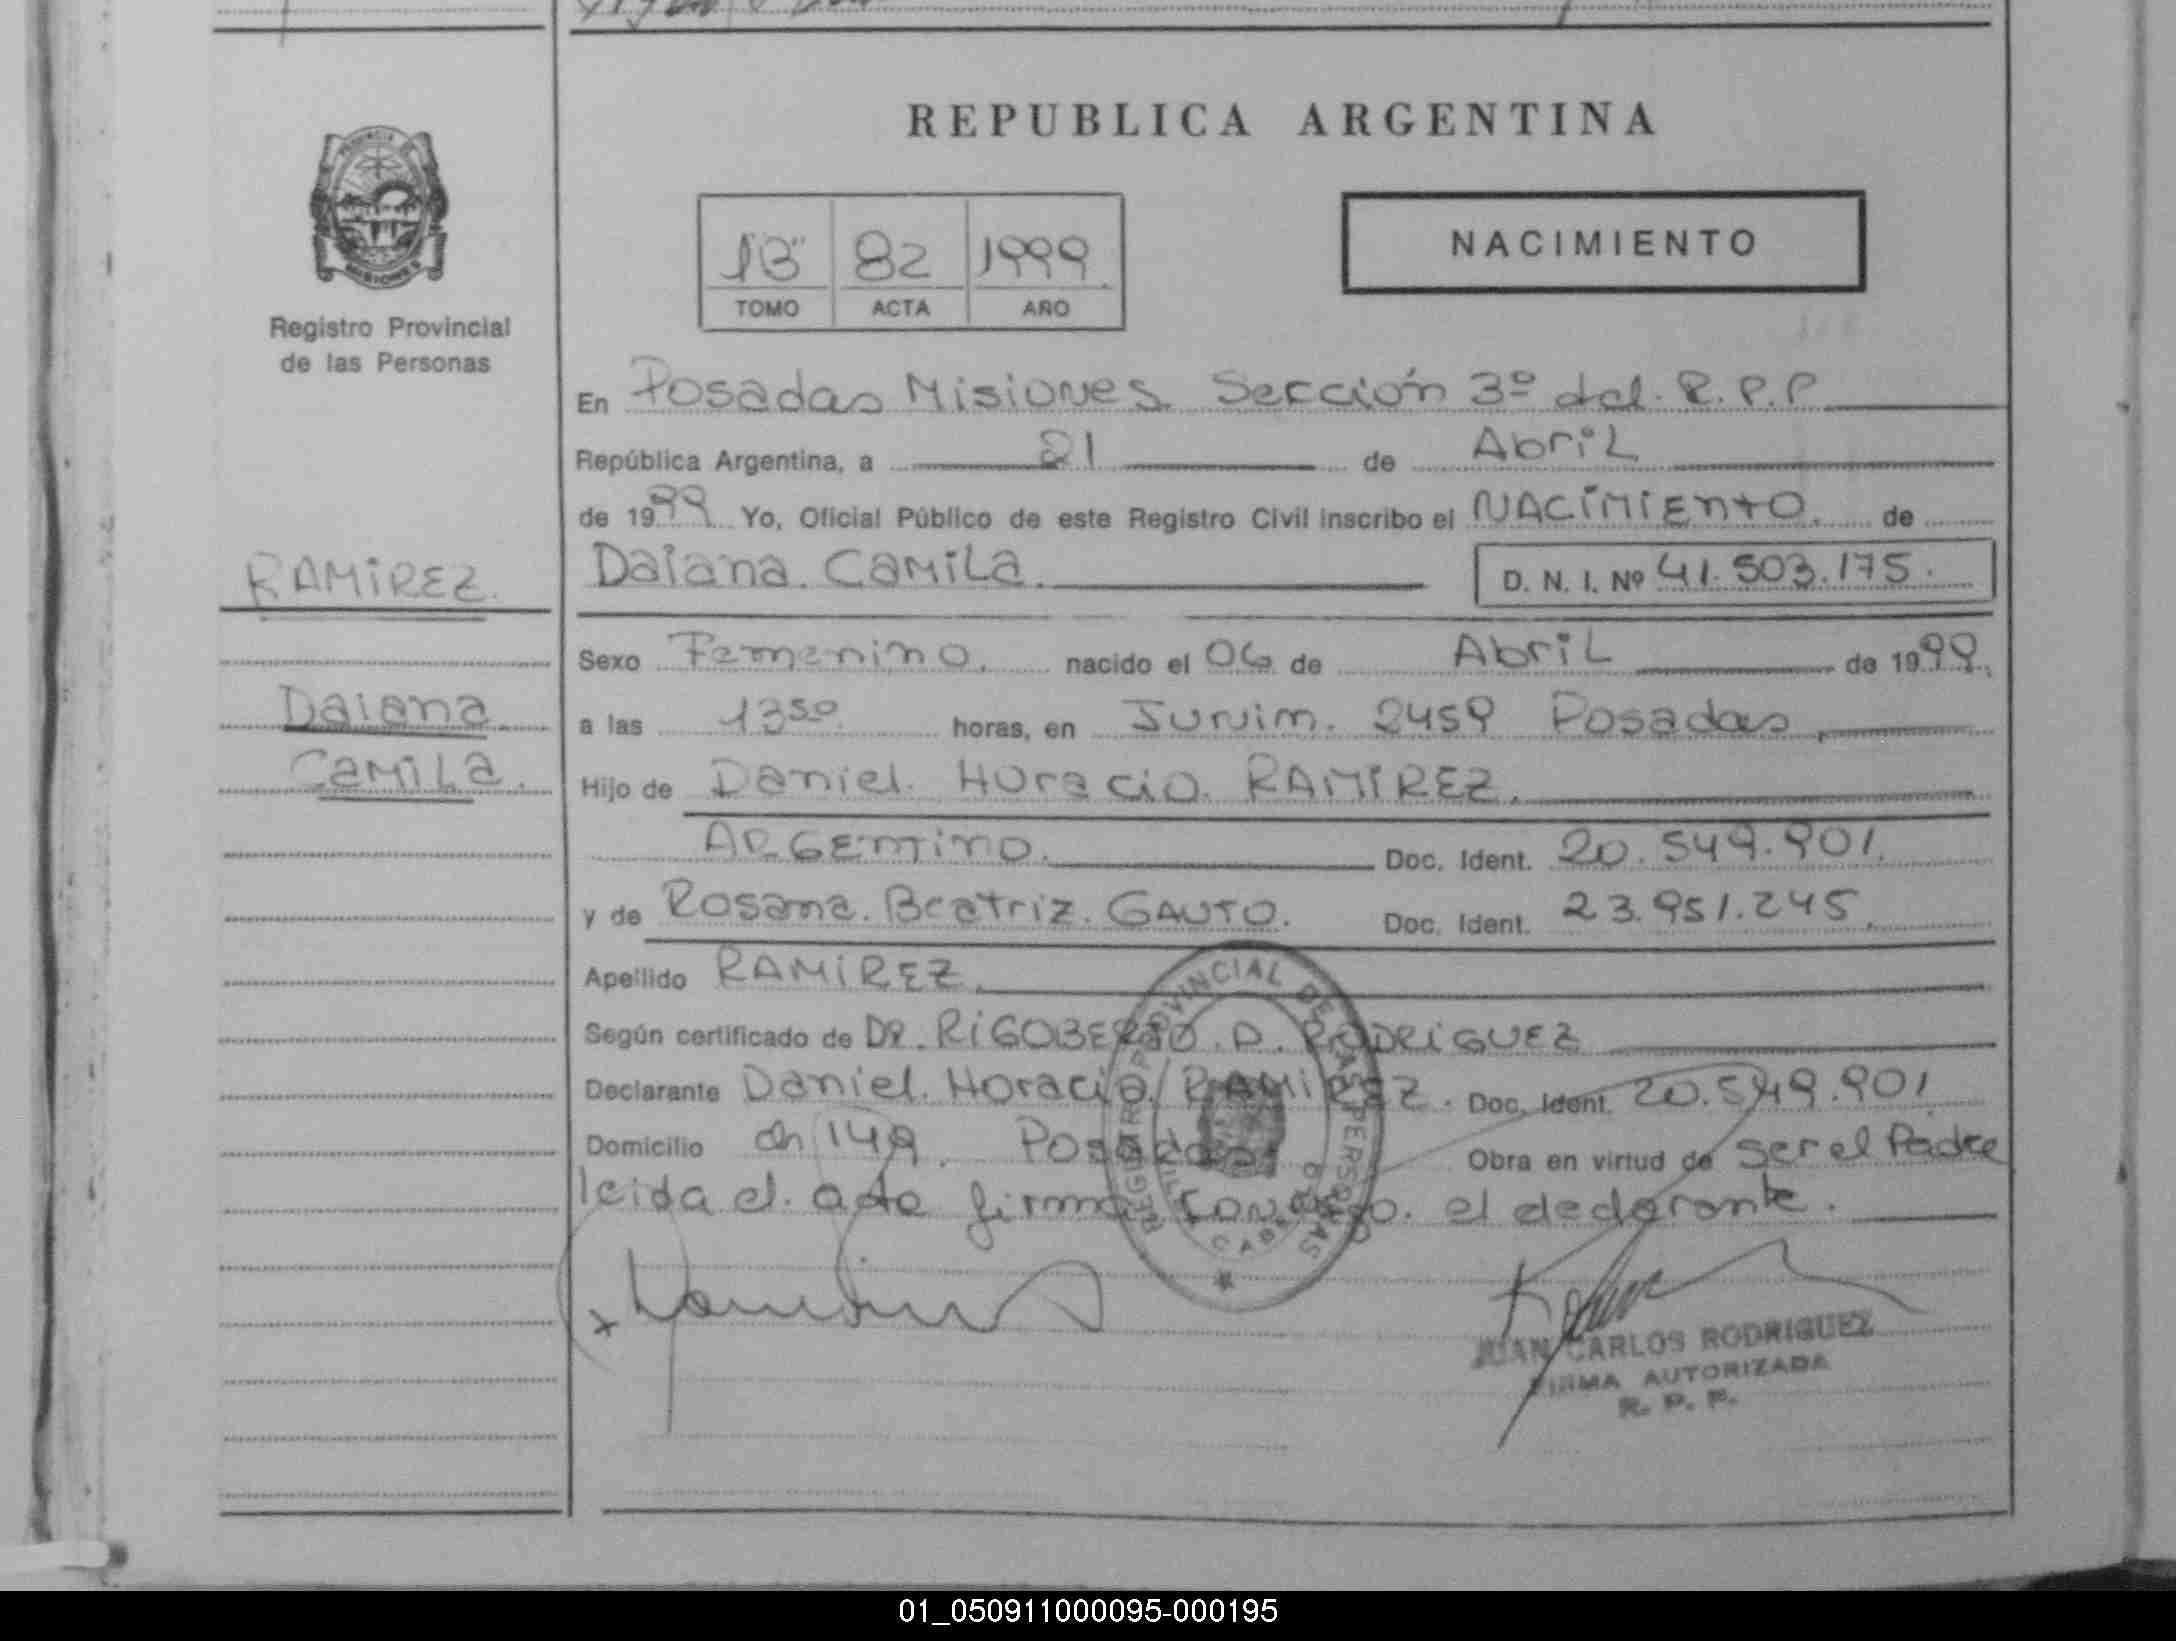 REPUBLICA ARGENTINA
NACIMIENTO
82 1999
TOMO ACTA AÑO
Registro Provincial
de las Personas
En Posadas Misiones Sección 3º del R.P.P
República Argentina, a 21 de Abril
de 1999 Yo, Oficial Público de este Registro Civil inscribo el NACIMIENTO. de
RAMIREZ.
Daiana Camila.
D. N. I. Nº 41.503.175.
Sexo Femenino. nacido el 06 de Abril de 1999.
Daiana
Camila.
a las 13⁵⁰ horas, en Junin. 2459 Posadas
Hijo de Daniel Horacio RAMIREZ.
ARGENTINO. Doc. Ident. 20.549.901.
y de Rosana Beatriz GAUTO. Doc. Ident. 23.951.245.
Apellido RAMIREZ.
Según certificado de DR. RIGOBERTO. D. RODRIGUEZ
Declarante Daniel Horacio RAMIREZ. Doc. Ident. 20.549.901
Domicilio ch 149. Posadas Obra en virtud de ser el Padre
leida el acta firma conmigo el declarante.
REGISTRO PROVINCIAL DE LAS PERSONAS
JUAN CARLOS RODRIGUEZ
FIRMA AUTORIZADA
R. P. P.
01_050911000095-000195